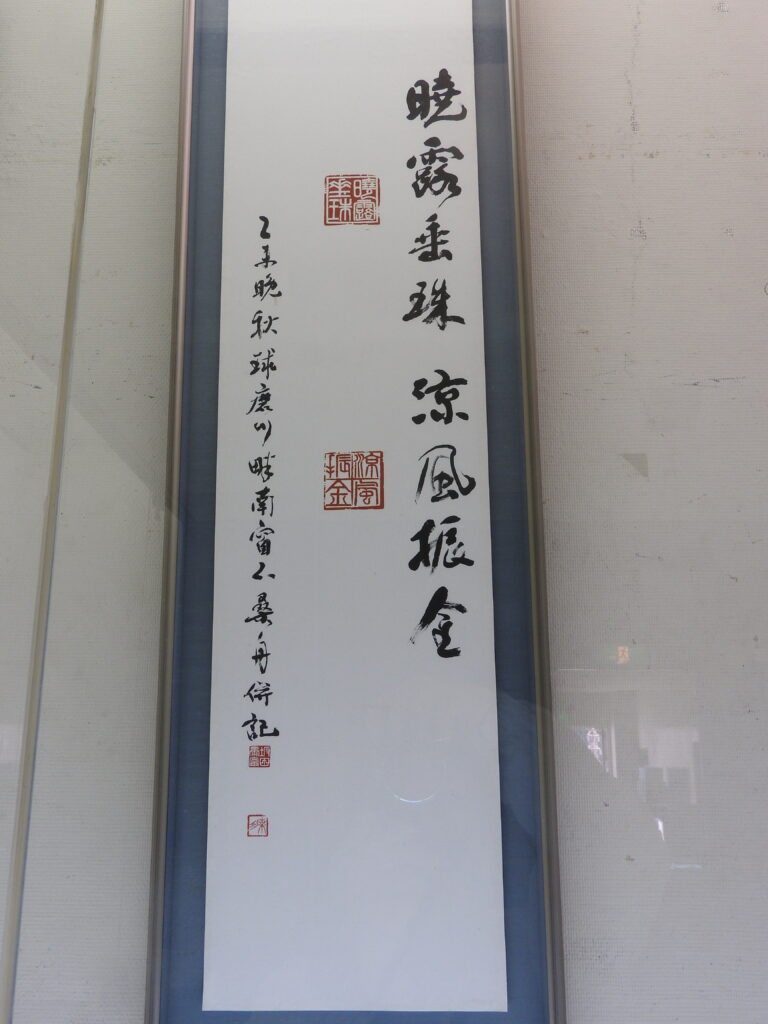 曉露垂珠 涼風振金
曉露垂珠
涼風振金
乙未晩秋球磨川畔南窗下桑舟併記